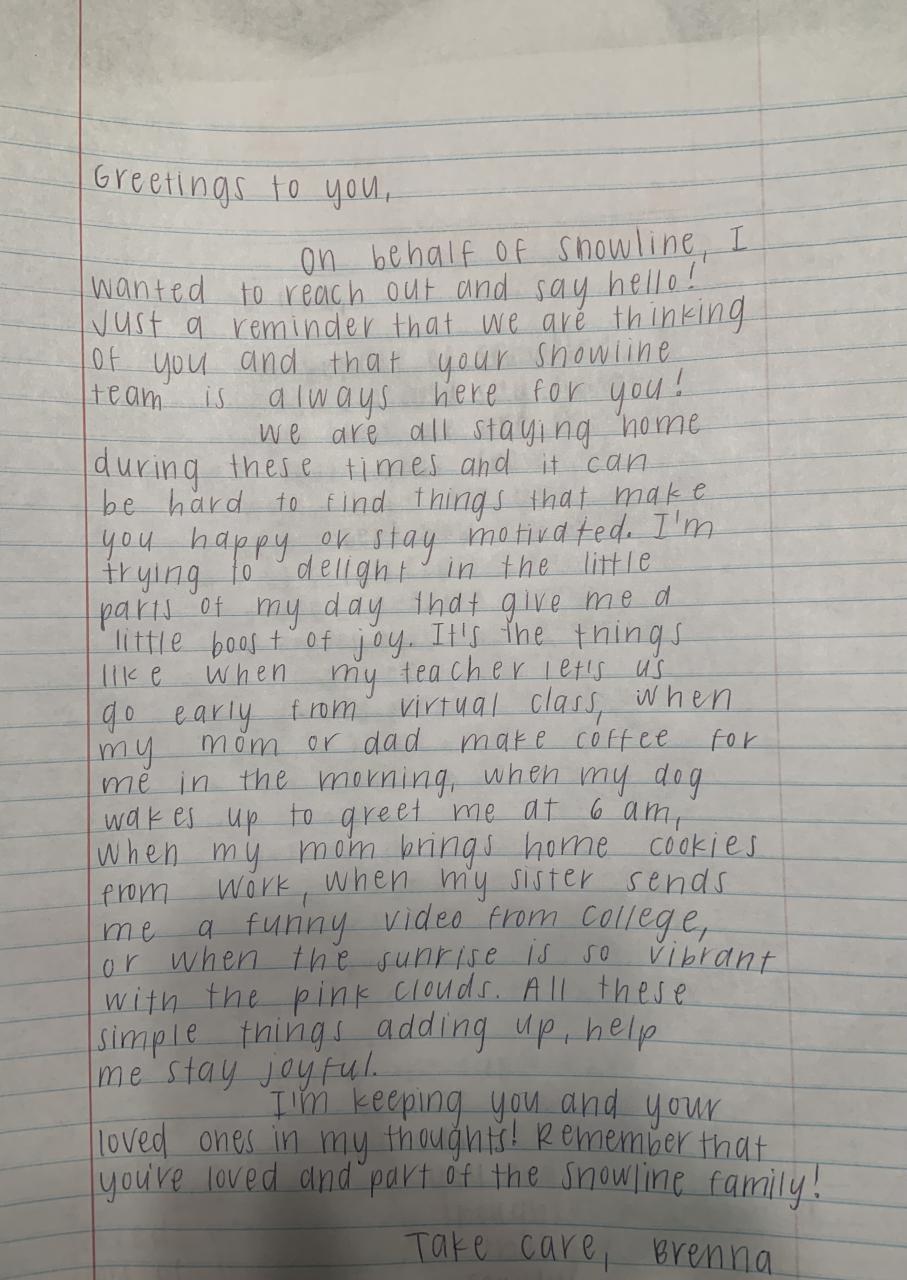 Greetings to you,
On behalf of snowline, I
wanted to reach out and say hello!
Just a reminder that we are thinking
of you and that your snowline
team is always here for you!
We are all staying home
during these times and it can
be hard to find things that make
you happy or stay motivated. I'm
trying to delight in the little
parts of my day that give me a
little boost of joy. It's the things
like when my teacher let's us
go early from virtual class, when
my mom or dad make coffee for
me in the morning, when my dog
wakes up to greet me at 6 am,
when my mom brings home cookies
from work, when my sister sends
me a funny video from college,
or when the sunrise is so vibrant
with the pink clouds. All these
simple things adding up, help
me stay joyful.
I'm keeping you and your
loved ones in my thoughts! Remember that
you're loved and part of the snowline family!
Take care, Brenna